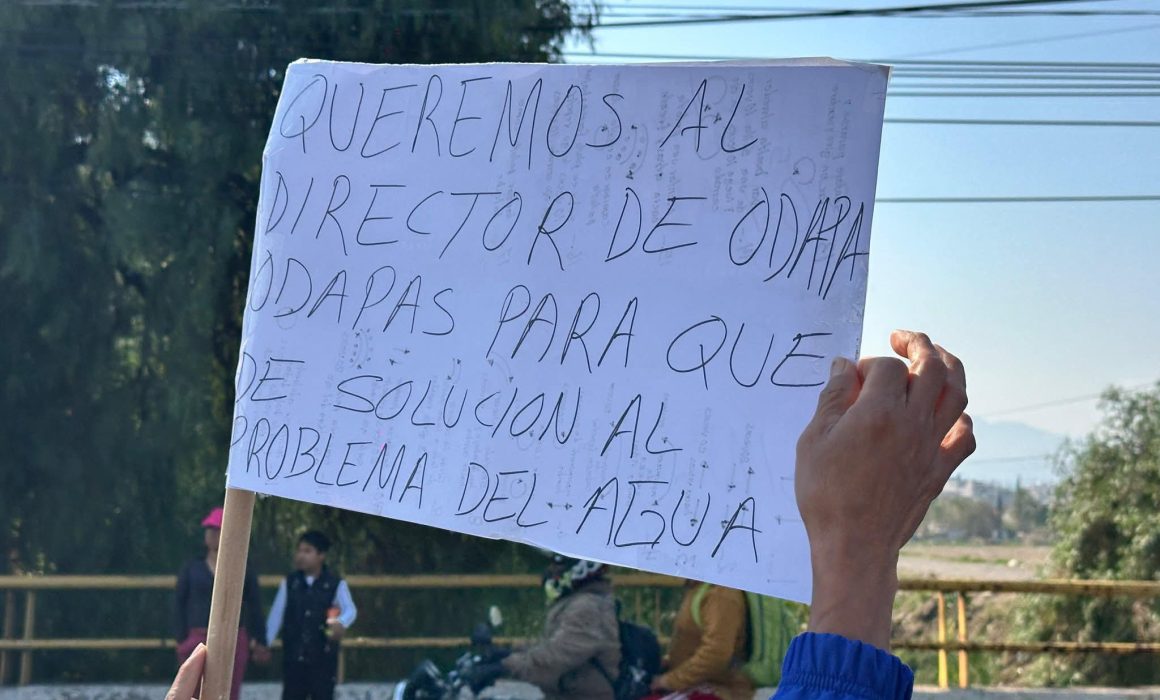 QUEREMOS AL
DIRECTOR DE ODAPA
ODAPAS PARA QUE
DE SOLUCION AL
PROBLEMA DEL AGUA